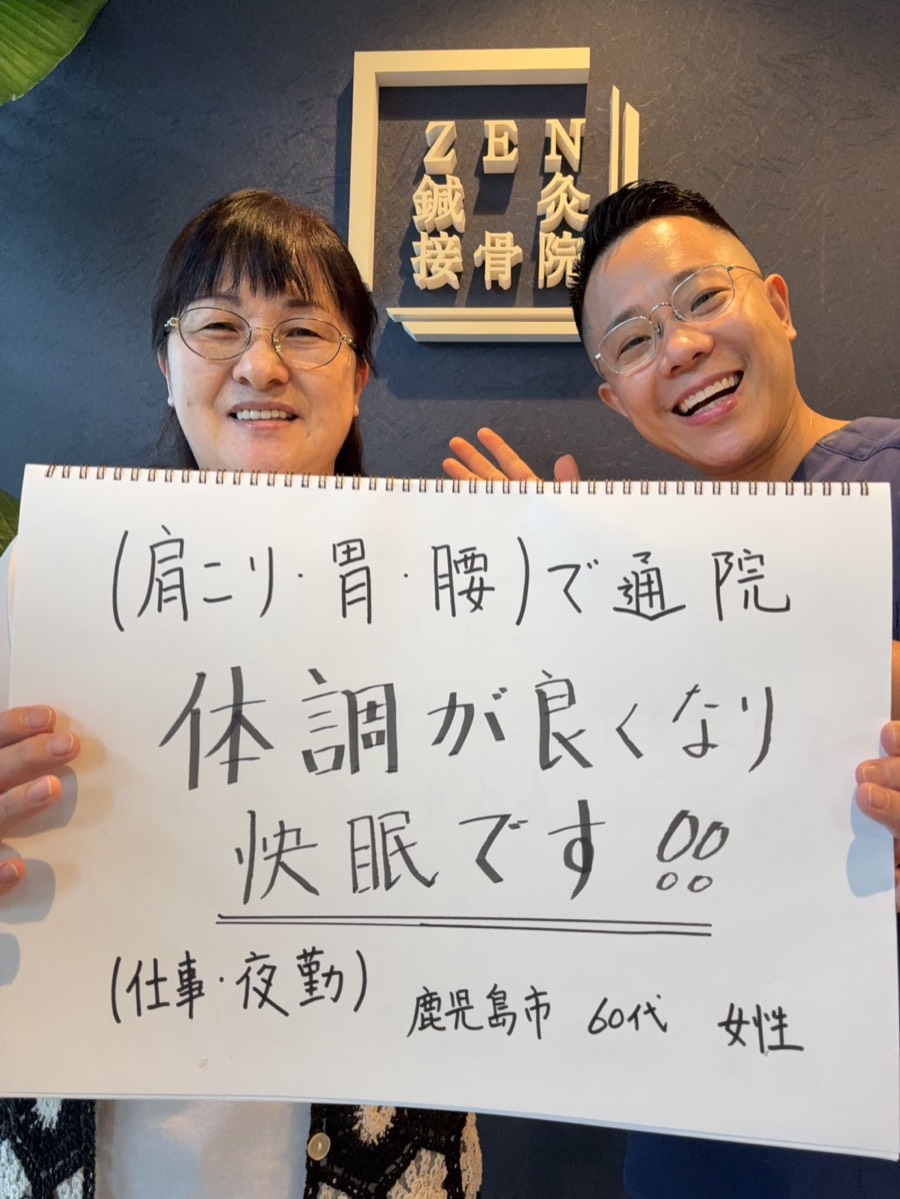 ZEN
鍼灸
接骨院
(肩こり・胃・腰)で通院
体調が良くなり
快眠です!!
(仕事・夜勤)
鹿児島市 60代 女性